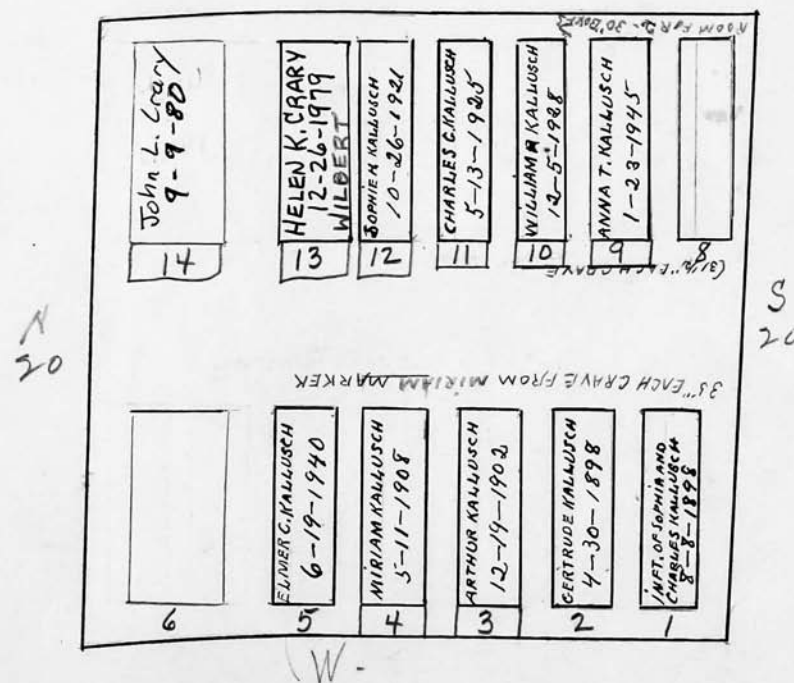 ROOM FOR 2-30" BOXES
John L. Crary
9-9-80
14
HELEN K. CRARY
12-26-1979
WILBERT
13
SOPHIE M KALLUSCH
10-26-1921
12
CHARLES C. KALLUSCH
5-13-1925
11
WILLIAM R KALLUSCH
12-5-1928
10
ANNA T. KALLUSCH
1-23-1945
9
8
(31½" EACH GRAVE
N
20
S
20
33" EACH GRAVE FROM MIRIAM MARKER
6
ELMER C. KALLUSCH
6-19-1940
5
MIRIAM KALLUSCH
5-11-1908
4
ARTHUR KALLUSCH
12-19-1902
3
GERTRUDE KALLUSCH
4-30-1898
2
INFT. OF SOPHIA AND
CHARLES KALLUSCH
8-8-1898
1
W-